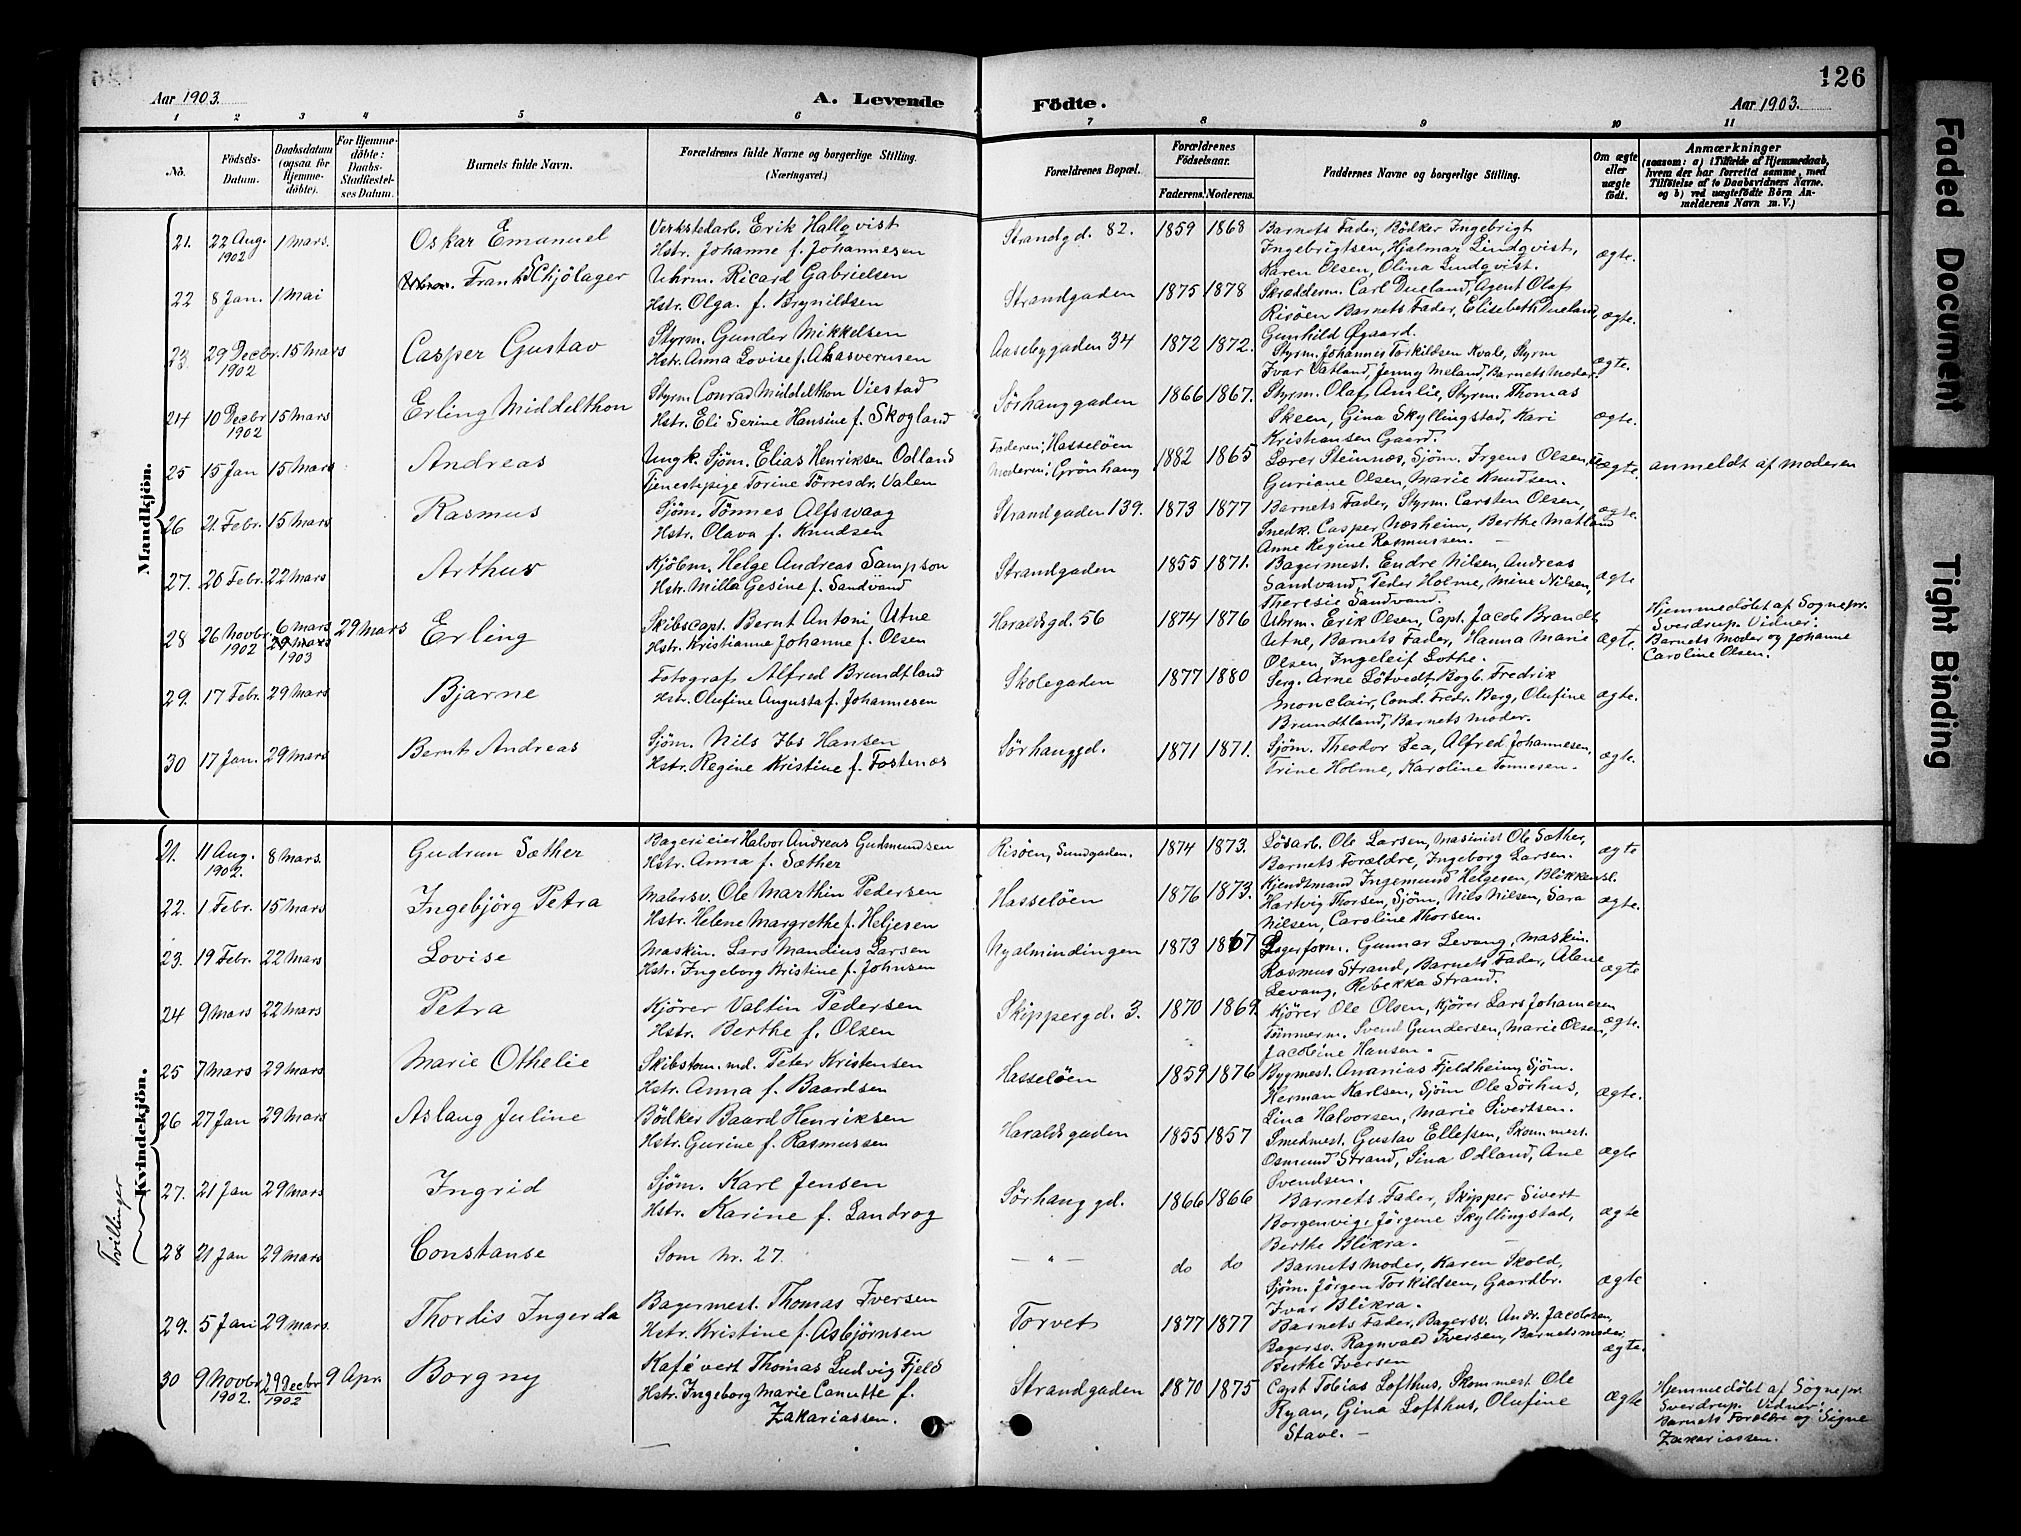 126
Aar 1903.
A. Levende
Födte.
Aar 1903.
1 2 3 4 5 6 7 8 9 10 11
No.
Födsels-Datum.
Daabsdatum (ogsaa for Hjemmedöbte).
For Hjemmedöbte: Daabs-Stadfæstelses Datum.
Barnets fulde Navn.
Forældrenes fulde Navne og borgerlige Stilling. (Næringsvei.)
Forældrenes Bopæl.
Forældrenes Födselsaar.
Faderens. Moderens.
Faddernes Navne og borgerlige Stilling.
Om ægte eller uægte födt.
Anmærkninger
(saasom: a) i Tilfælde af Hjemmedaab, hvem der har forrettet samme, med Tilföielse af to Daabsvidners Navne, og b) ved uægtefödte Börn Anmelderens Navn m. V.)
Mandkjön.
21. 22 Aug. 1902 1 Mars. Oskar Emanuel
Verkstedarb. Erik Hallqvist
Hstr. Johanne f. Johannesen
Strandgd. 82. 1859 1868
Barnets Fader, Bödker Ingebrigt
Ingebrigtsen, Hjalmar Lindqvist,
Karen Olsen, Olina Lindqvist.
ægte.
22 8 Jan. 1 Mai Frank Schjölager
Uhrm. Ricard Gabrielsen
Hstr. Olga f. Brynildsen
Strandgaden 1875 1878
Skrædderm. Carl Dueland, Agent Olaf
Risöen Barnets Fader, Elisebeth Dueland,
Gunhild Øgaard.
ægte.
23. 29 Decbr. 1902 15 Mars Casper Gustav
Styrm. Gunder Mikkelsen
Hstr. Anna Lovise f. Ahasverusen
Aasebygaden 34 1872 1872.
Styrm. Johannes Torkildsen Kvale, Styrm
Ivar Vatland, Jenny Meland, Barnets Moder.
ægte.
24 10 Decbr 1902 15 Mars Erling Middelthon
Styrm. Conrad Middelthon Viestad
Hstr. Eli Serine Hansine f. Skogland
Sörhauggaden 1866 1867.
Styrm. Olaf Amlie, Styrm. Thomas
Skeen, Gina Skyllingstad, Kari
Kristiansen Gaard.
ægte.
25 15 Jan 15 Mars Andreas
Ungk. Sjöm. Elias Henriksen Odland
Tjenestepige Torine Törresdr. Valen
Faderen: Hasselöen
Moderen: Grönhaug
1882 1865
Lærer Steinnes, Sjöm. Irgens Olsen,
Guriane Olsen, Marie Knudsen.
uægte.
anmeldt af moderen
26 21 Febr. 15 Mars. Rasmus
Sjöm. Tönnes Alfsvaag
Hstr. Olava f. Knudsen
Strandgaden 139. 1873 1877
Barnets Fader, Styrm. Carsten Olsen,
Snedk. Casper Næsheim, Berthe Matland
Anne Regine Rasmussen.
ægte.
27. 20 Febr. 22 Mars Arthur
Kjöbm. Helge Andreas Sampson
Hstr. Milla Gesine f. Sandvand
Strandgaden 1855 1871.
Bagermest. Endre Nilsen, Andreas
Sandvand, Peder Holme, Mine Nilsen,
Theresie Sandvand.
ægte
28 26 Novbr. 1902 6 Mars 1903 29 Mars Erling
Skibscapt. Bernt Antoni Utne
Hstr. Kristianne Johanne f. Olsen
Haraldsgd. 56 1874 1876
Uhrm. Erik Olsen, Capt. Jacob Brandt
Utne, Barnets Fader, Hanna Marie
Olsen, Ingeleif Lothe.
ægte.
Hjemmedöbt af Sognepr.
Sverdrup. Vidner:
Barnets Moder og Johanne
Caroline Olsen.
29. 17 Febr. 29 Mars. Bjarne
Fotograf Alfred Brundtland
Hstr. Olufine Augusta f. Johannesen
Skolegaden 1877 1880
Serg. Arne Lötvedt, Bogb. Fredrik
Monclair, Cond. Fredr. Berg, Olufine
Brundtland, Barnets Moder.
ægte.
30 17 Jan. 29 Mars Bernt Andreas
Sjöm. Nils Ibs Hansen
Hstr. Regine Kristine f. Fosenæs
Sörhauggd. 1871 1871.
Sjöm. Theodor Lea, Alfred Johannesen,
Trine Holme, Karoline Tönnesen.
ægte.
Kvindekjön.
21. 11 Aug. 1902. 8 Mars. Gudrun Sæther
Bagerieier Halvor Andreas Gudmundsen
Hstr. Anna f. Sæther
Risöen, Sundgaden. 1874 1873.
Lösarb. Ole Larsen, Maskinist Ole Sæther,
Barnets Forældre, Ingeborg Larsen.
ægte
22. 1 Febr. 15 Mars Ingebjörg Petra
Malersv. Ole Marthin Pedersen
Hstr. Helene Margrethe f. Heljesen
Hasselöen 1876 1873.
Kjendtmand Ingemund Helgesen, Blikkensl.
Hartvig Thorsen, Sjöm. Nils Nilsen, Sara
Nilsen, Caroline Thorsen.
ægte.
23. 19 Febr. 22 Mars Lovise
Maskin. Lars Mandius Larsen
Hstr. Ingeborg Kristine f. Johnsen
Nyalmindingen 1873 1867
Lagerform. Gunnar Levang, Maskin.
Rasmus Strand, Barnets Fader, Alane
Levang, Rebekka Strand.
ægte
24 9 Mars 22 Mars Petra
Kjörer Valtin Pedersen
Hstr. Berthe f. Olsen
Skippergd. 3. 1870 1869.
Kjörer Ole Olsen, Kjörer Lars Johannesen
Tömmerm. Svend Gundersen, Marie Olsen,
Jacobine Hansen.
ægte.
25 7 Mars 29 Mars Marie Othelie
Skibstöm.md. Peter Kristensen
Hstr. Anna f. Baardsen
Hasselöen 1859 1876
Bygmest. Ananias Fjeldheim, Sjöm.
Herman Karlsen, Sjöm Ole Sörhus,
Lina Halvorsen, Marie Sivertsen.
ægte.
26 27 Jan 29 Mars Aslaug Juline
Bödker Baard Henriksen
Hstr. Gurine f. Rasmussen
Haraldsgaden 1855 1857
Smedmest. Gustav Ellefsen, Skom.mest.
Osmund Strand, Sina Odland, Ane
Svendsen.
ægte
Tvillinger
27. 21 Jan 29 Mars Ingrid
Sjöm. Karl Jensen
Hstr. Karine f. Landrog
Sörhauggd. 1866 1866
Barnets Fader, Skipper Sivert
Borgenvig, Jörgine Skyllingstad,
Berthe Blikra.
ægte
28 21 Jan 29 Mars Constanse
Som Nr. 27.
— " — do do
Barnets Moder, Karen Skold,
Sjöm. Jörgen Torkildsen, Gaardbr.
Ivar Blikra.
ægte
29. 5 Jan 29 Mars. Thordis Ingerda
Bagermest. Thomas Iversen
Hstr. Kristine f. Asbjörnsen
Torvet 1877 1877
Barnets Fader, Bagersv. Andr. Jacobsen,
Bagersv. Ragnvald Iversen, Barnets Moder,
Berthe Iversen
ægte.
30 9 Novbr. 1902. 29 Decbr 1902 9 Apr. Borgny
Kafévert Thomas Ludvig Fjeld
Hstr. Ingeborg Marie Canutte f.
Zakariassen.
Strandgaden 1870 1875
Capt Tobias Lofthus, Skommest. Ole
Ryan, Gina Lofthus, Olufine
Stave.
ægte
Hjemmedöbt af Sognepr.
Sverdrup. Vidner:
Barnets Forældre og Signe
Zakariassen.
Faded Document
Tight Binding